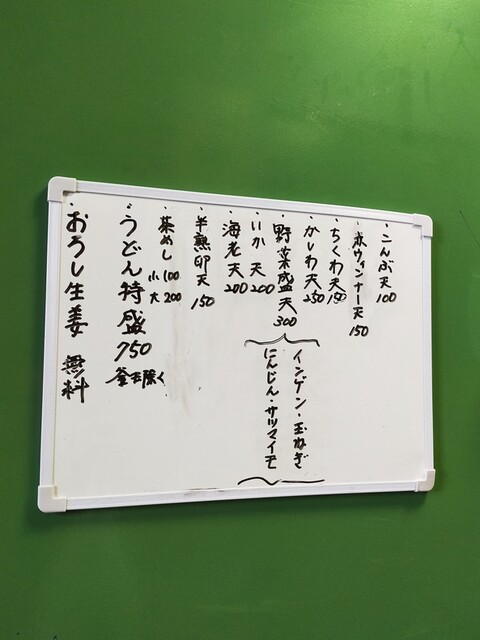 ・こんぶ天 100
・赤ウィンナー天 150
・ちくわ天 150
・かしわ天 250
・野菜盛天 300
インゲン・玉ねぎ
にんじん・サツマイモ
・いか天 200
・海老天 200
・半熟卵天 150
・茶めし 小100
大200
・うどん特盛 750
釜玉除く
・おろし生姜 無料